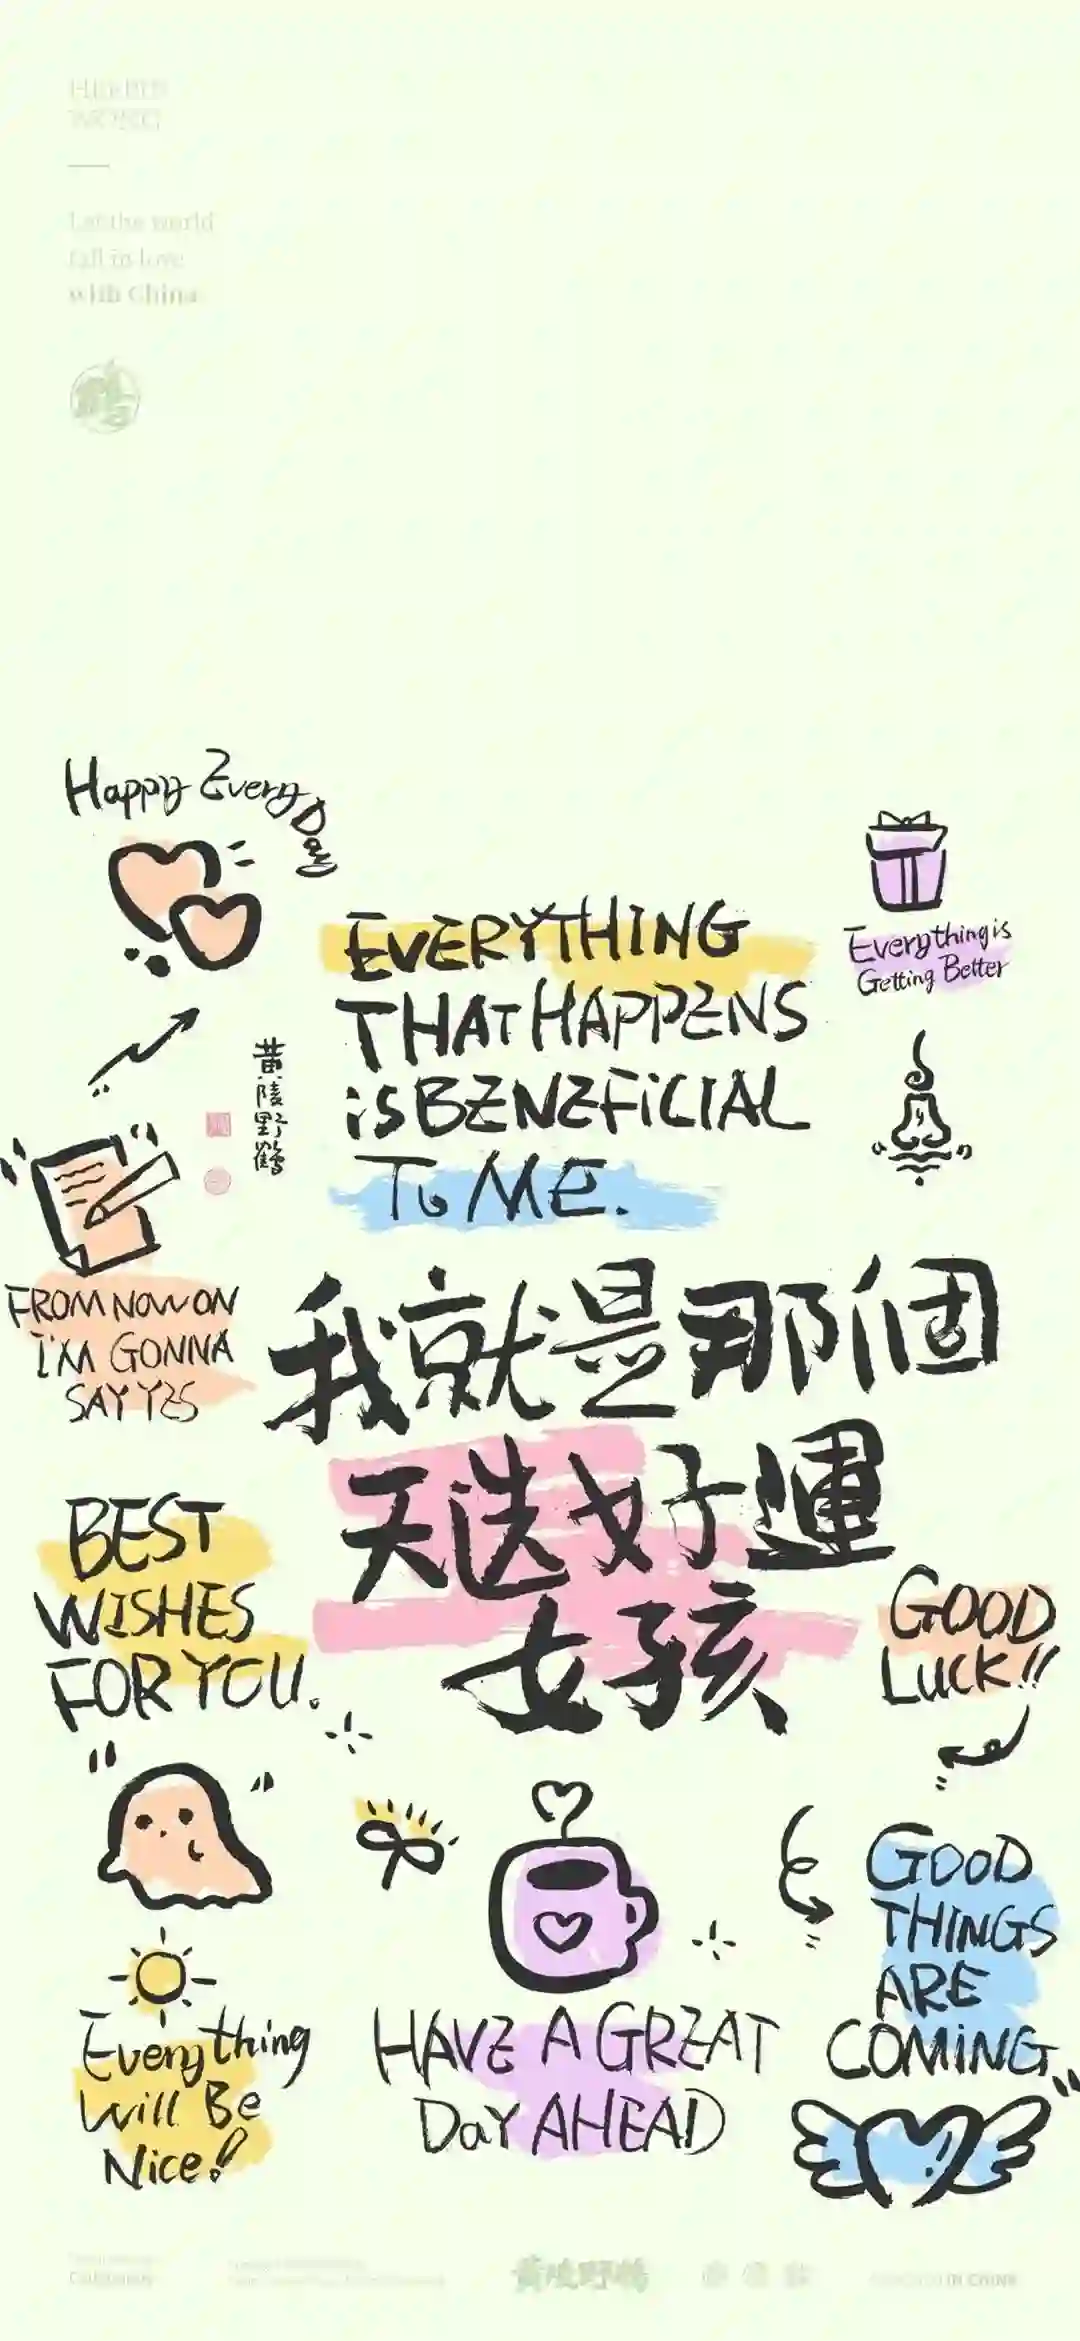 WONG
Let the world
fall in love
with China
Happy Every Day
Everything is
Getting Better
EVERYTHING
THAT HAPPENS
iS BENEFiCIAL
To ME.
黄陵野鶴
FROM NOW ON
I'M GONNA
SAY YES
我就是那個
天选好運
女孩
BEST
WISHES
FOR YOU.
GOOD
LUCK!!
GOOD
THINGS
ARE
COMiNG
Everything
Will Be
Nice!
HAVE A GREAT
DaY AHEAD
黄陵野鹤
IN CHINA